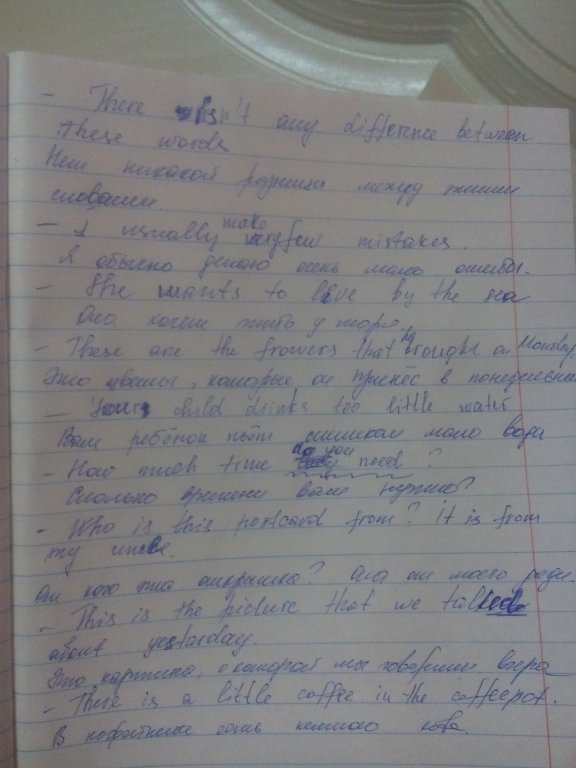 - There isn't any difference between
these words
Нет никакой разницы между этими
словами
- I usually make very few mistakes.
Я обычно делаю очень мало ошибок.
- She wants to live by the sea
Она хочет жить у моря.
- These are the flowers that he brought on Monday
Это цветы, которые он принёс в понедельник
- Your child drinks too little water
Ваш ребёнок пьёт слишком мало воды
- How much time do you need ?
Сколько времени вам нужно?
- Who is this postcard from? it is from
my uncle.
От кого эта открытка? Она от моего дяди.
- This is the picture that we talked
about yestarday.
Это картина, о которой мы говорили вчера
- There is a little coffee in the coffeepot.
В кофейнике есть немного кофе.